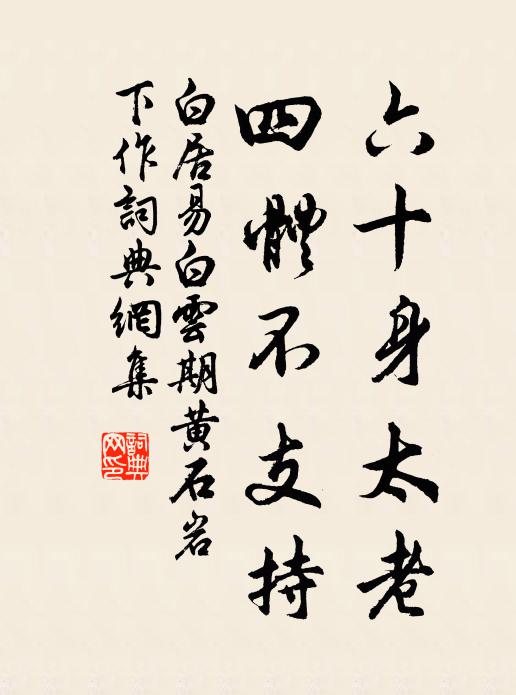 六十身太老
四體不支持
白居易白雲期黄石岩
下作詞典網集
詞典網印